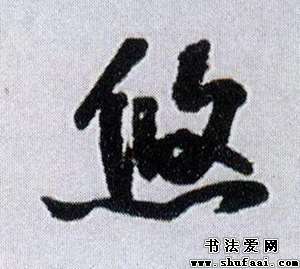 悠
书法爱网
www.shufaai.com